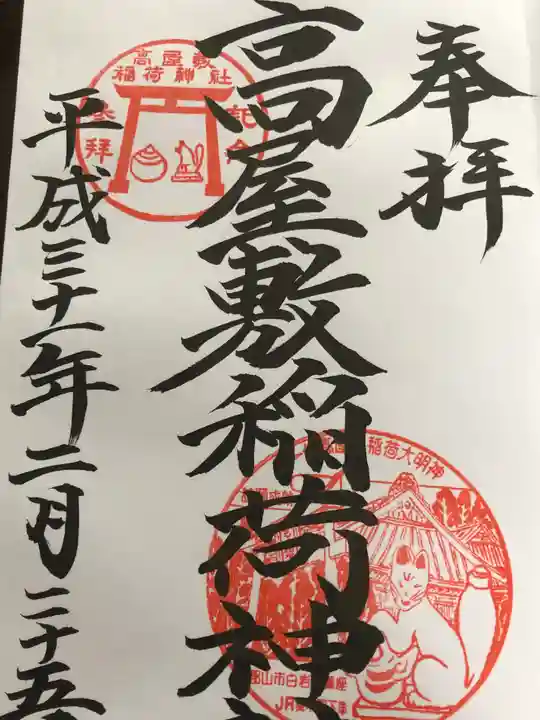 奉拝
高屋敷稲荷神
平成三十一年二月二十五
高屋敷
稲荷神社
参拝
記念
稲荷大明神
山市白岩
JR